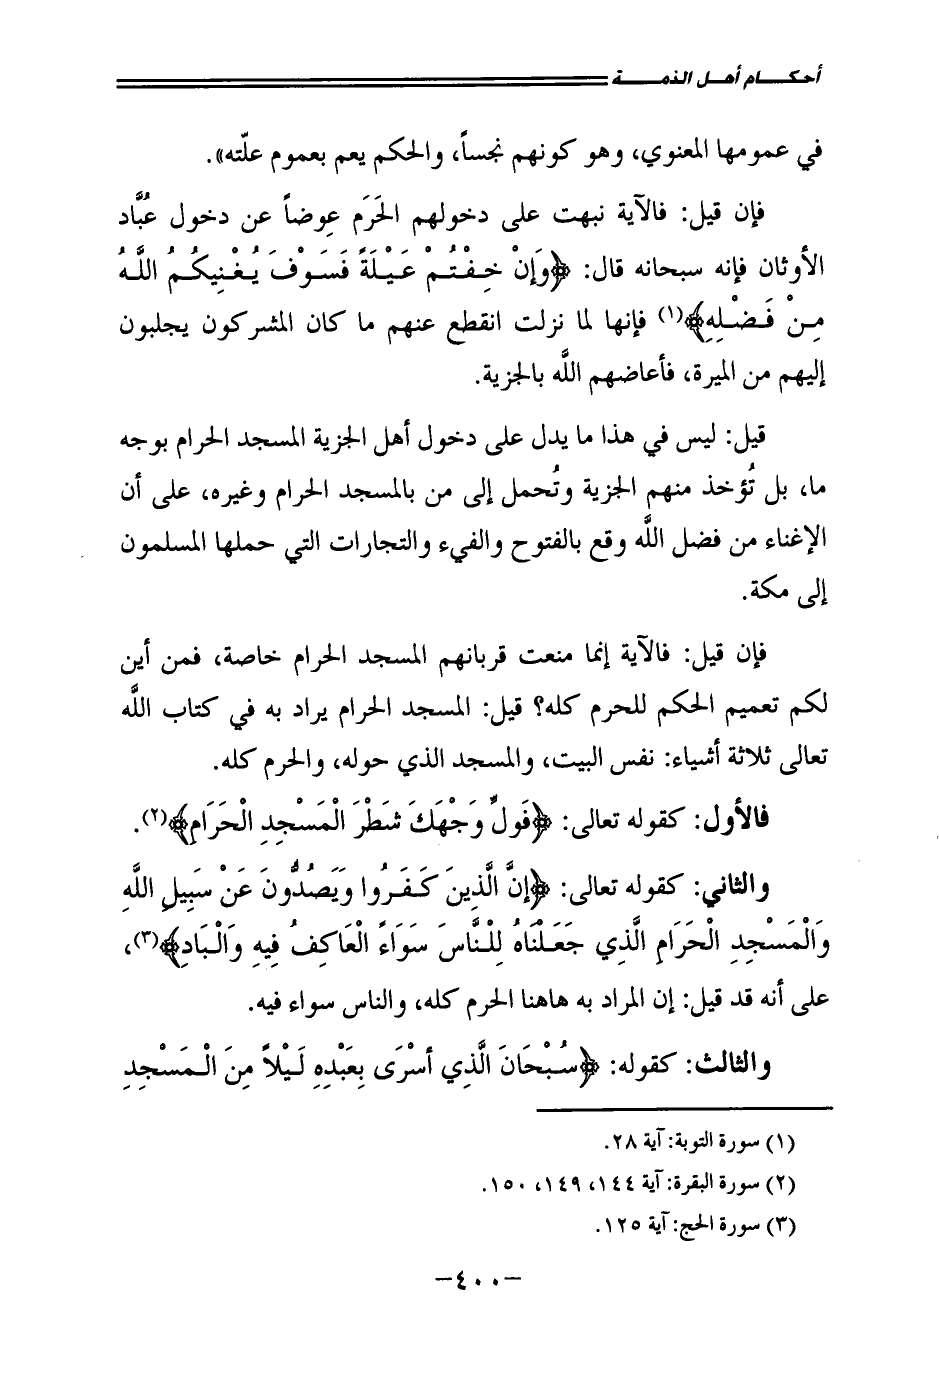 أحكـــام أهـل الذمـــة
في عمومها المعنوي، وهو كونهم نجساً، والحكم يعم بعموم علّته».
فإن قيل: فالآية نبهت على دخولهم الحَرَم عِوضاً عن دخول عُبَّاد
الأوثان فإنه سبحانه قال: ﴿وَإِنْ خِفْتُمْ عَيْلَةً فَسَوْفَ يُغْنِيكُمُ اللَّهُ
مِنْ فَضْلِهِ﴾(١) فإنها لما نزلت انقطع عنهم ما كان المشركون يجلبون
إليهم من الميرة، فأعاضهم اللَّه بالجزية.
قيل: ليس في هذا ما يدل على دخول أهل الجزية المسجد الحرام بوجه
ما، بل تُؤخذ منهم الجزية وتُحمل إلى من بالمسجد الحرام وغيره، على أن
الإغناء من فضل اللَّه وقع بالفتوح والفيء والتجارات التي حملها المسلمون
إلى مكة.
فإن قيل: فالآية إنما منعت قربانهم المسجد الحرام خاصة، فمن أين
لكم تعميم الحكم للحرم كله؟ قيل: المسجد الحرام يراد به في كتاب اللَّه
تعالى ثلاثة أشياء: نفس البيت، والمسجد الذي حوله، والحرم كله.
فالأول: كقوله تعالى: ﴿فَوَلِّ وَجْهَكَ شَطْرَ الْمَسْجِدِ الْحَرَامِ﴾(٢).
والثاني: كقوله تعالى: ﴿إِنَّ الَّذِينَ كَفَرُوا وَيَصُدُّونَ عَنْ سَبِيلِ اللَّهِ
وَالْمَسْجِدِ الْحَرَامِ الَّذِي جَعَلْنَاهُ لِلْنَّاسَ سَوَاءً الْعَاكِفُ فِيهِ وَالْبَادِ﴾(٣)،
على أنه قد قيل: إن المراد به هاهنا الحرم كله، والناس سواء فيه.
والثالث: كقوله: ﴿سُبْحَانَ الَّذِي أَسْرَى بِعَبْدِهِ لَيْلاً مِنَ الْمَسْجِدِ
(١) سورة التوبة: آية ٢٨.
(٢) سورة البقرة: آية ١٤٤، ١٤٩، ١٥٠.
(٣) سورة الحج: آية ١٢٥.
–٤٠٠–